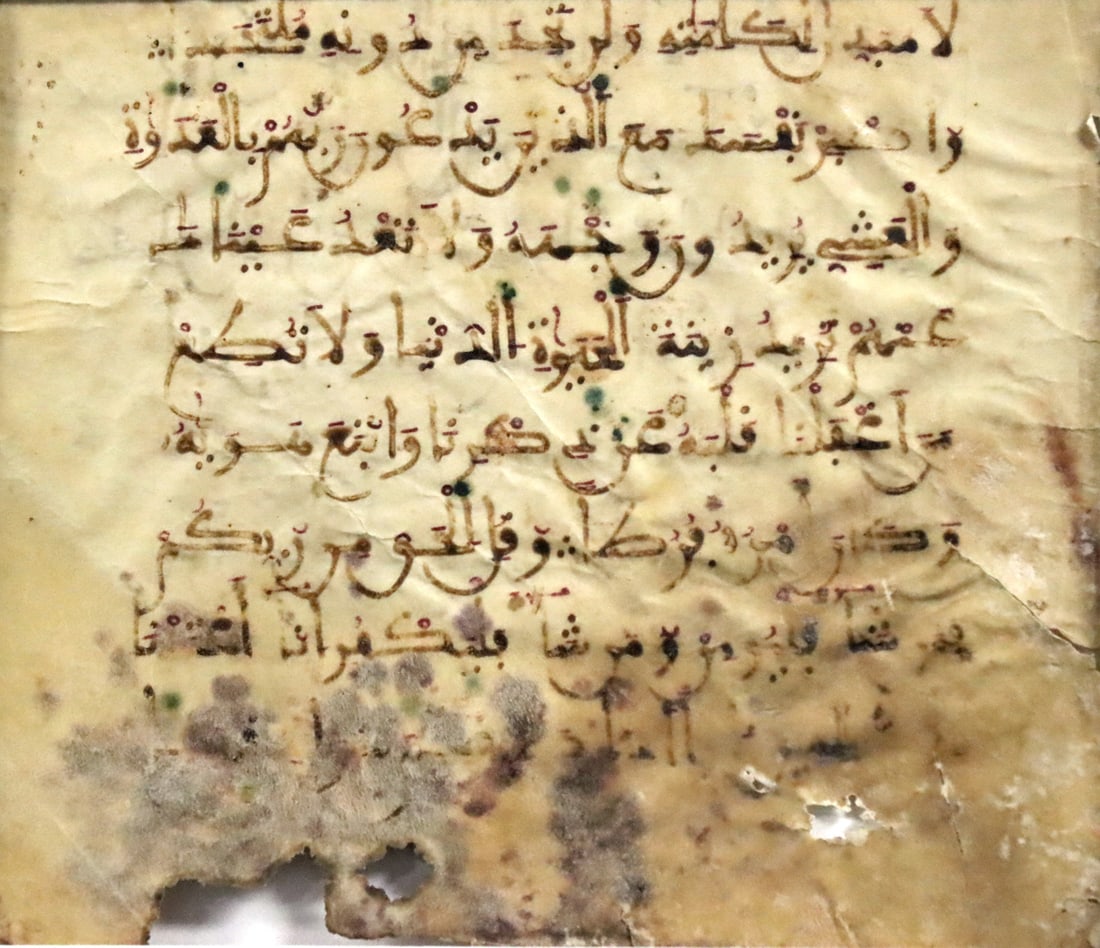 لا مبدل لكلمته ولن تجد من دونه ملتحدا
واصبر نفسك مع الذين يدعون ربهم بالغدوة
والعشي يريدون وجهه ولا تعد عيناك
عنهم تريد زينة الحيوة الدنيا ولا تطع
من اغفلنا قلبه عن ذكرنا واتبع هويه
وكان امره فرطا وقل الحق من ربكم
فمن شا فليومن ومن شا فليكفر انا اعتدنا